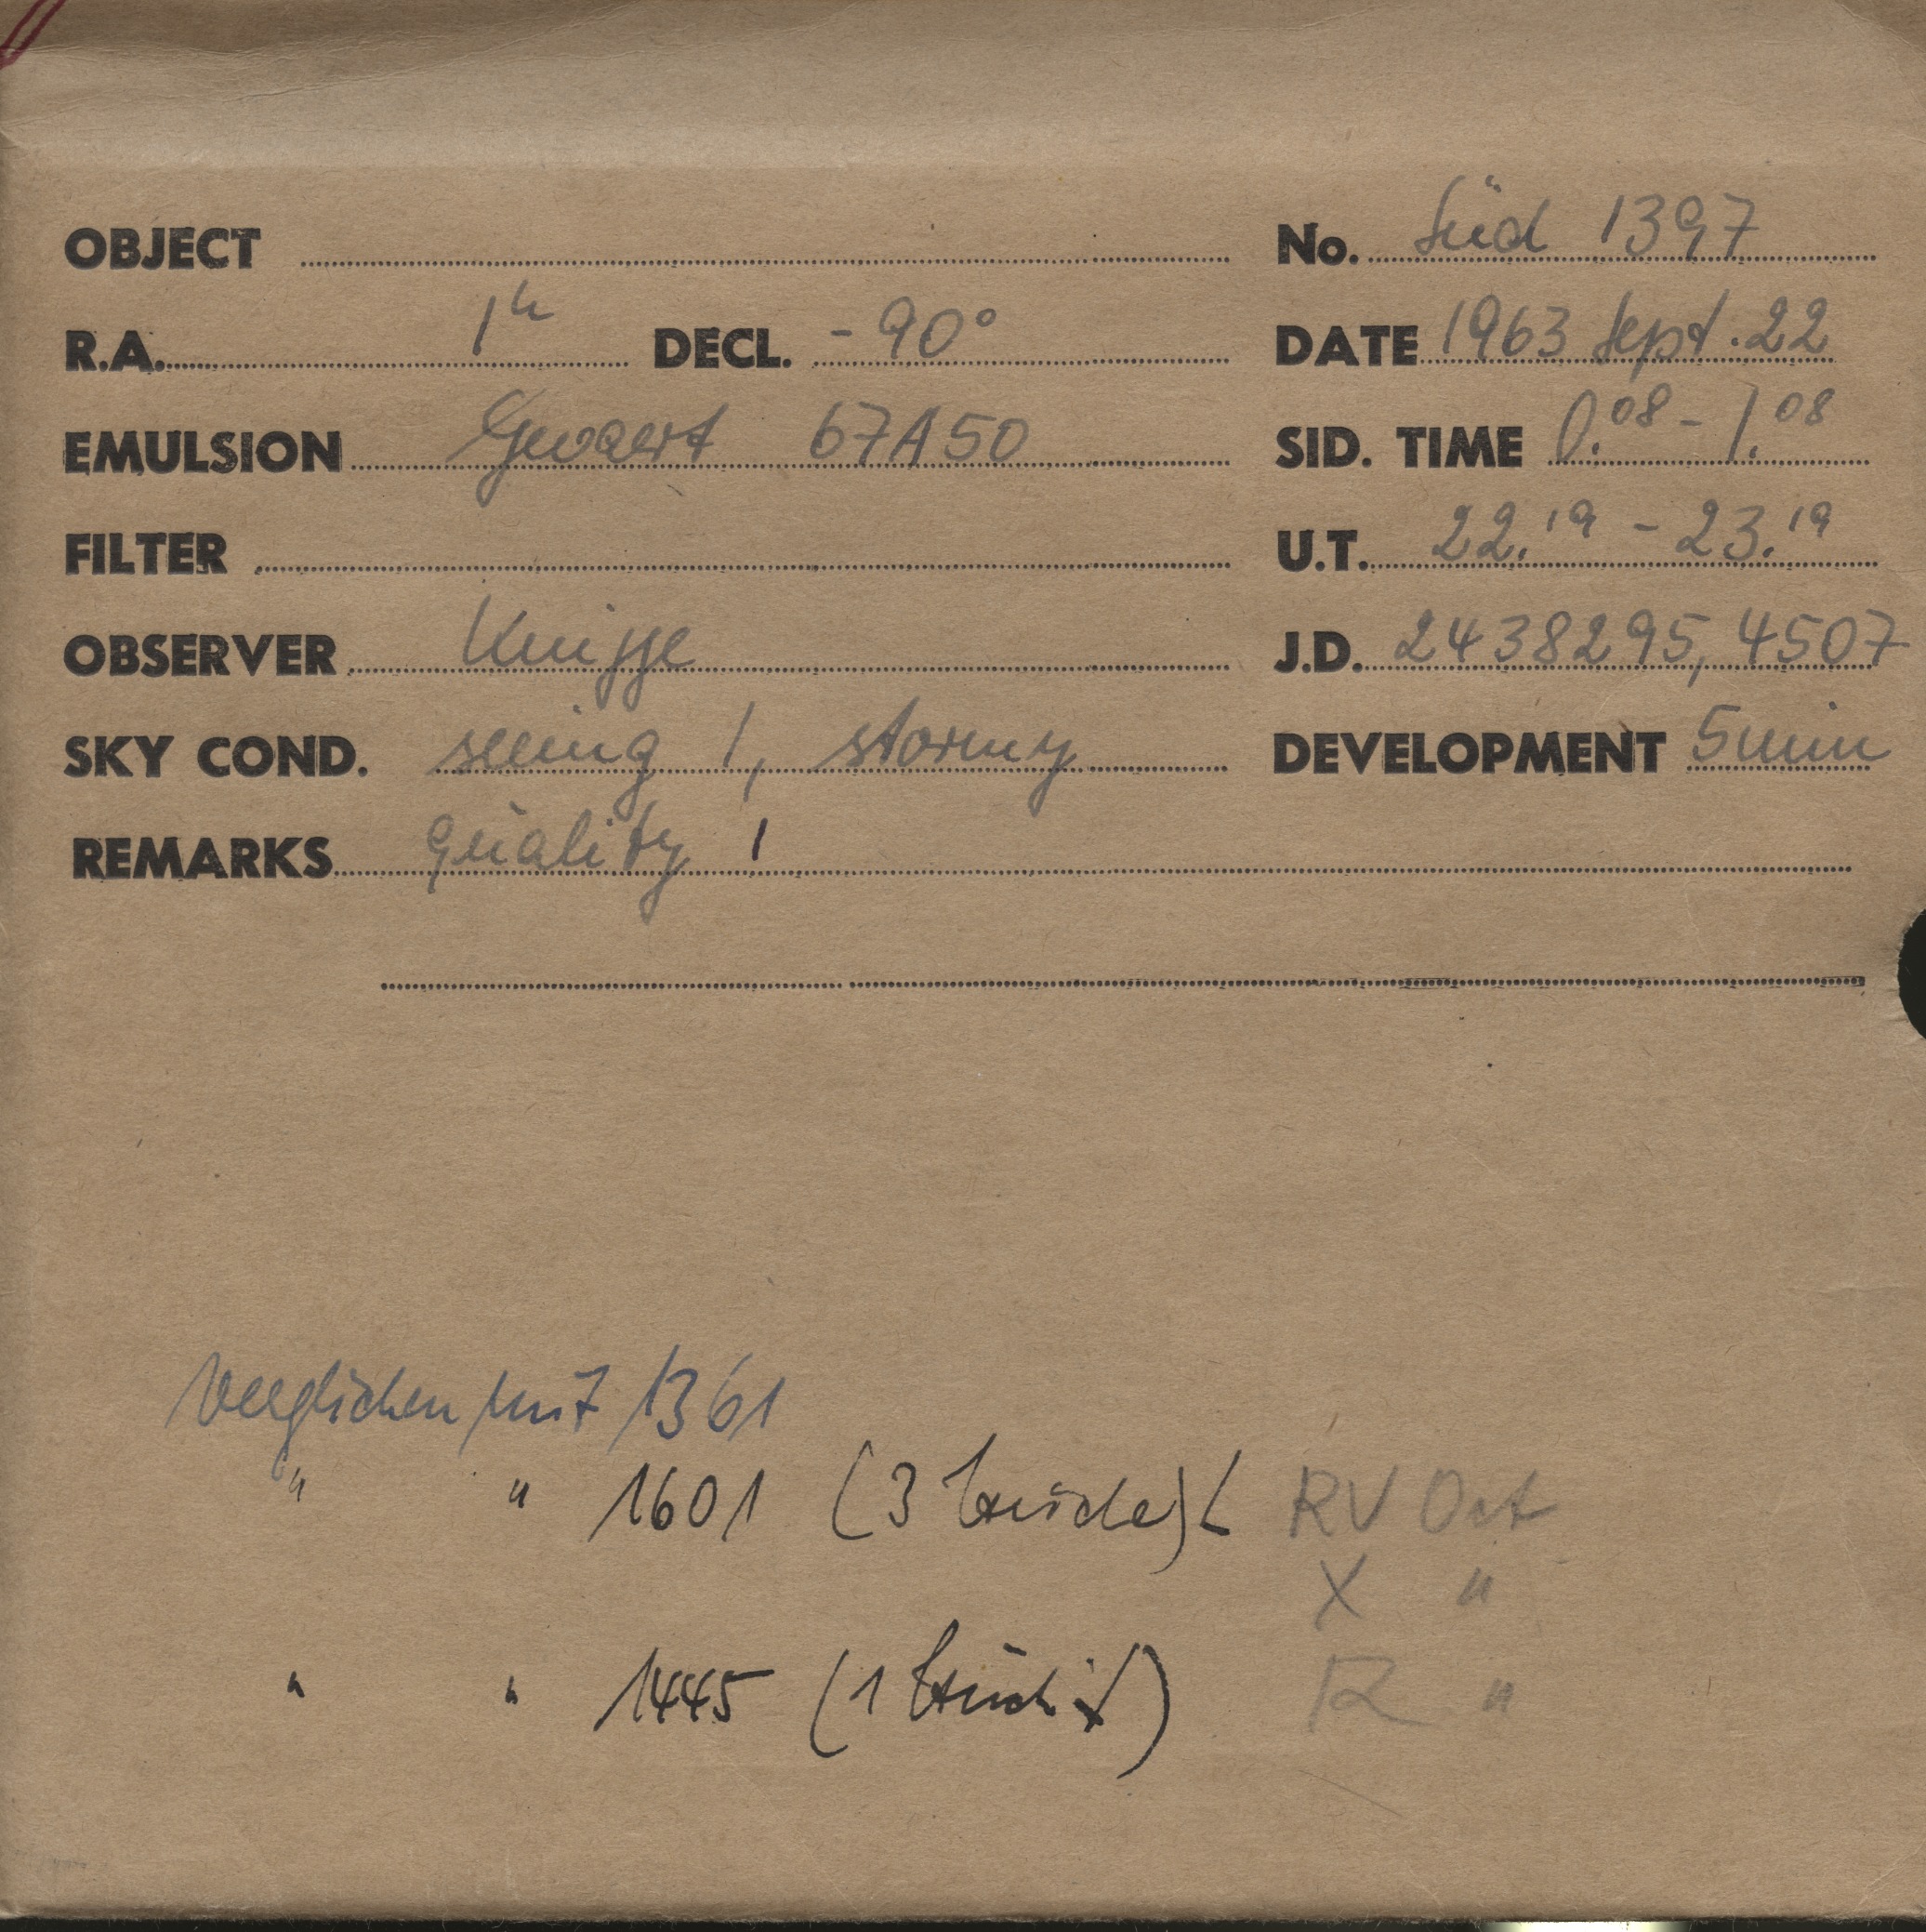 OBJECT No. Süd 1397
R.A. 1h DECL. -90° DATE 1963 Sept. 22
EMULSION Gevaert 67A50 SID. TIME 0.08 - 1.08
FILTER U.T. 22.19 - 23.19
OBSERVER Knigge J.D. 2438295,4507
SKY COND. seeing 1, stormy DEVELOPMENT 5 min
REMARKS quality 1
Verglichen mit 1361
" " 1601 (3 RV Oct
X "
" " 1445 (1 R "